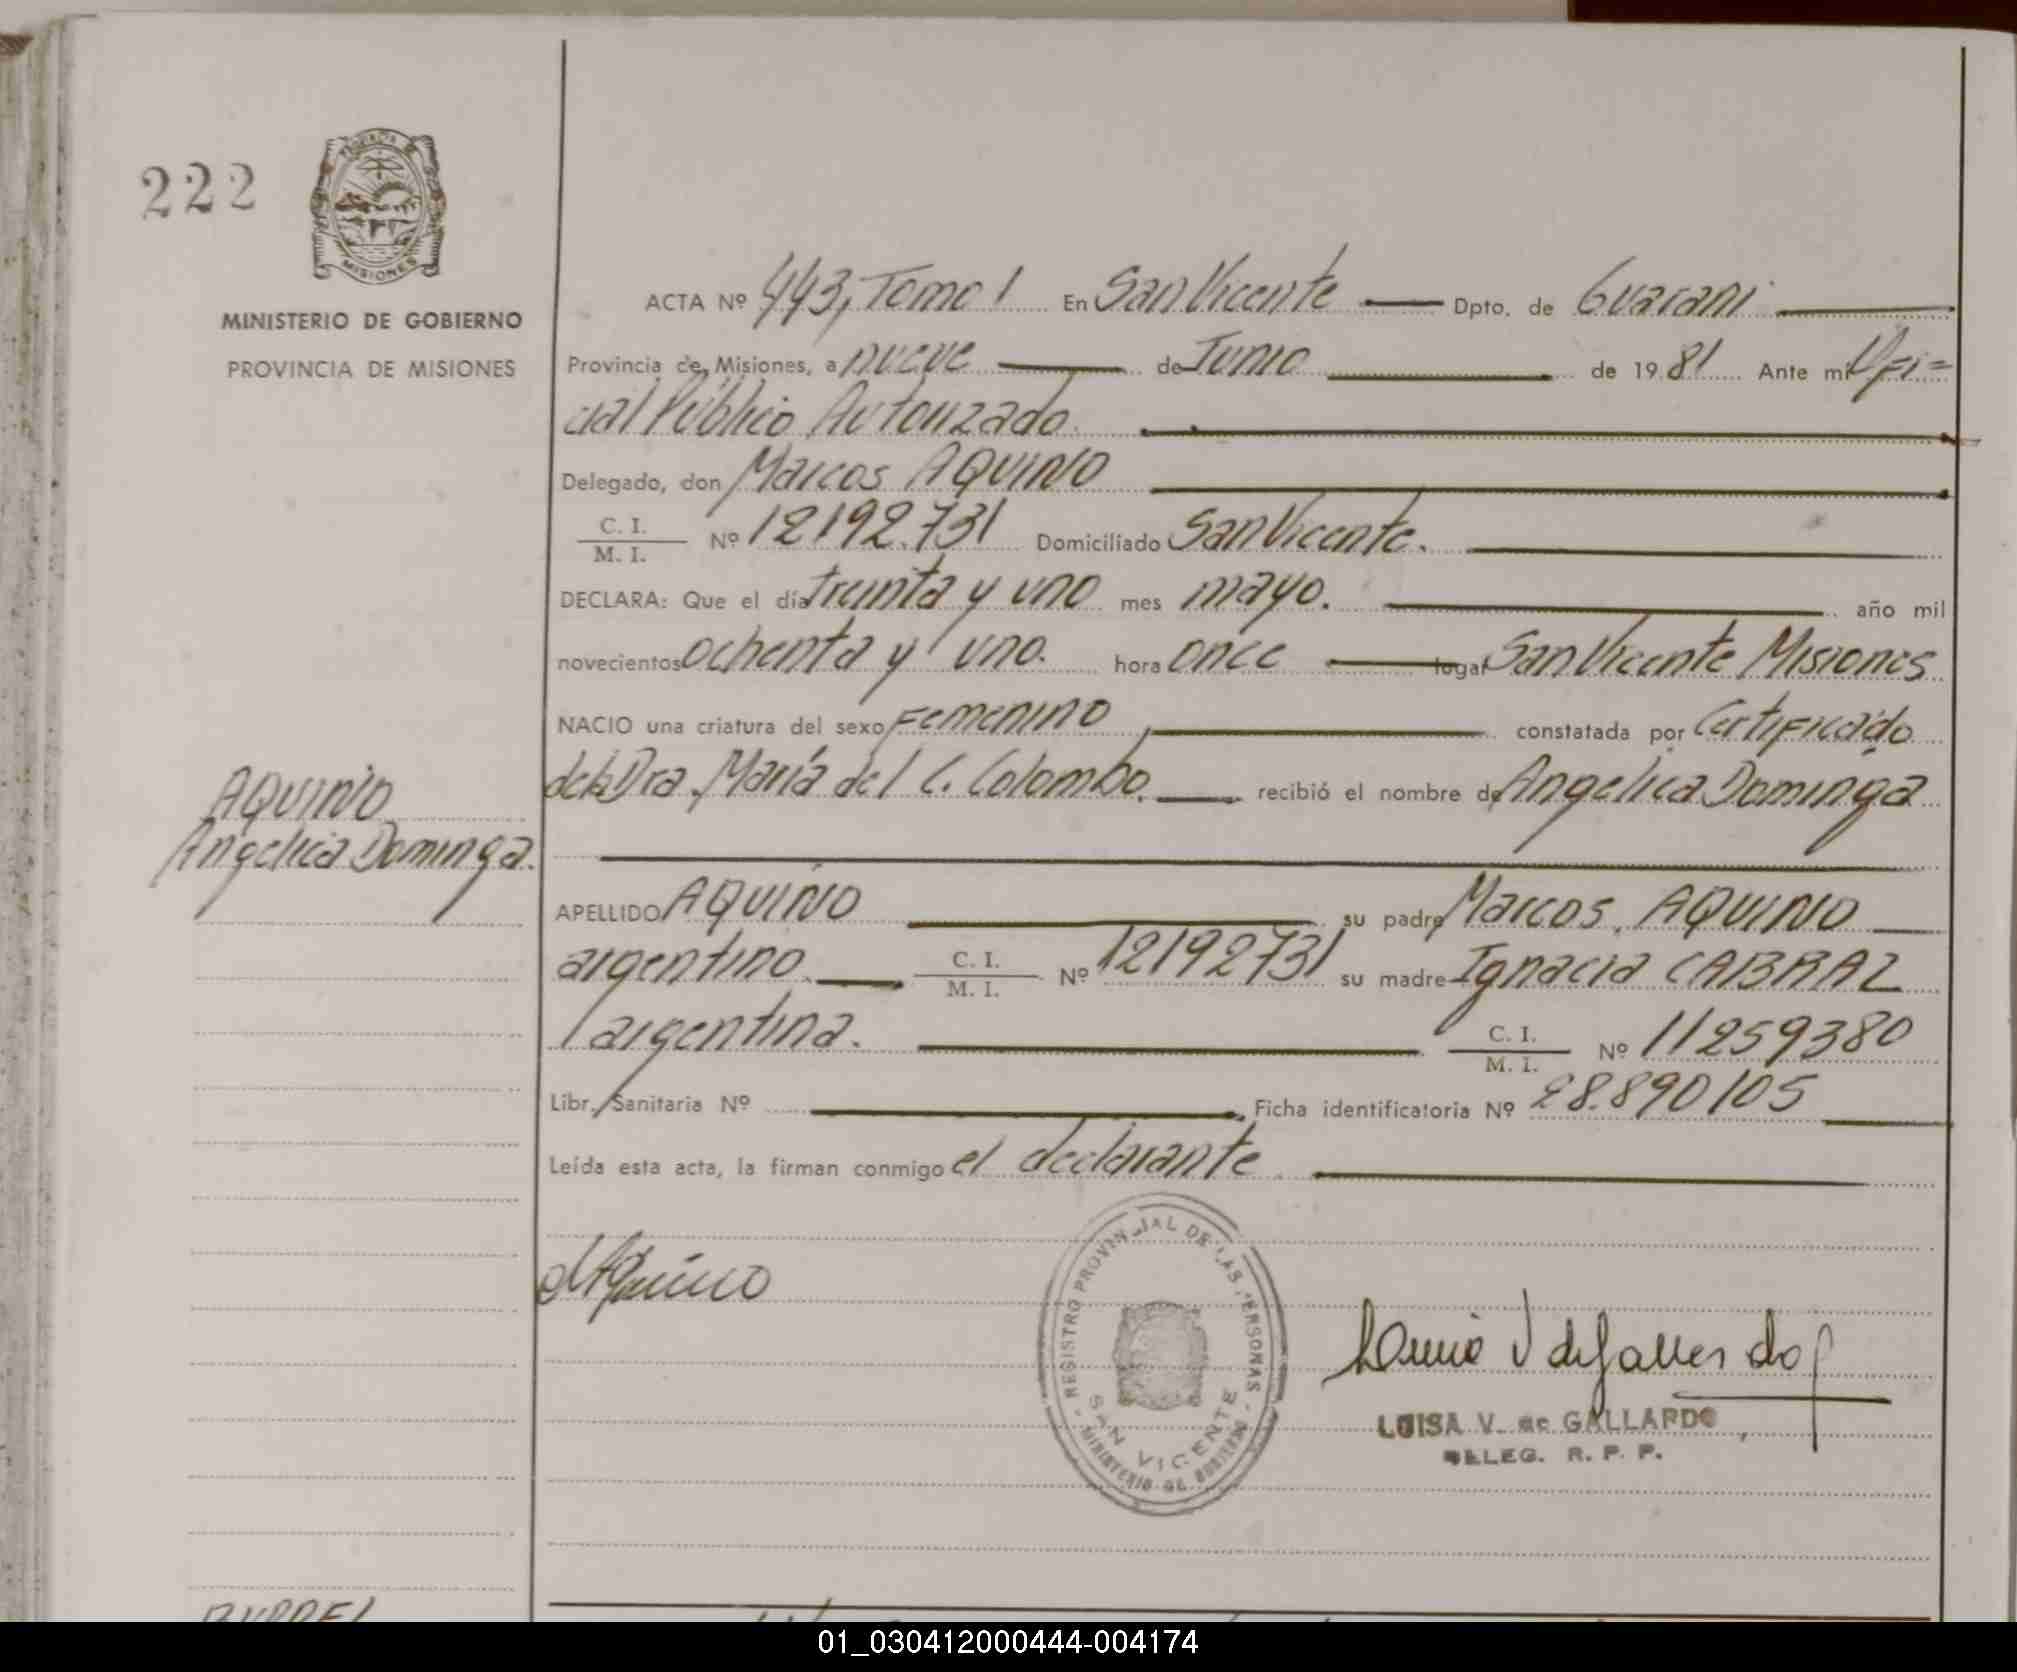 222
MISIONES
MINISTERIO DE GOBIERNO
PROVINCIA DE MISIONES
ACTA Nº 443, Tomo I En San Vicente Dpto. de Guarani
Provincia de Misiones, a nueve de Junio de 1981 Ante mi Ofi=
cial Público Autorizado.
Delegado, don Marcos AQUINO
C. I.
M. I. Nº 12192.731 Domiciliado San Vicente.
DECLARA: Que el día treinta y uno mes mayo. año mil
novecientos ochenta y uno. hora once lugar San Vicente Misiones
NACIO una criatura del sexo Femenino constatada por Certificado
de la Dra. María del C. Colombo. recibió el nombre de Angelica Dominga
AQUINO
Angelica Dominga.
APELLIDO AQUINO su padre Marcos AQUINO
argentino C. I.
M. I. Nº 12192731 su madre Ignacia CABRAL
argentina. C. I.
M. I. Nº 11259380
Libr. Sanitaria Nº Ficha identificatoria Nº 28.890105
Leída esta acta, la firman conmigo el declarante
Aquino
REGISTRO PROVINCIAL DE LAS PERSONAS
SAN VICENTE
MINISTERIO DE GOBIERNO
LUISA V. de GALLARDO
DELEG. R. P. P.
01_030412000444-004174